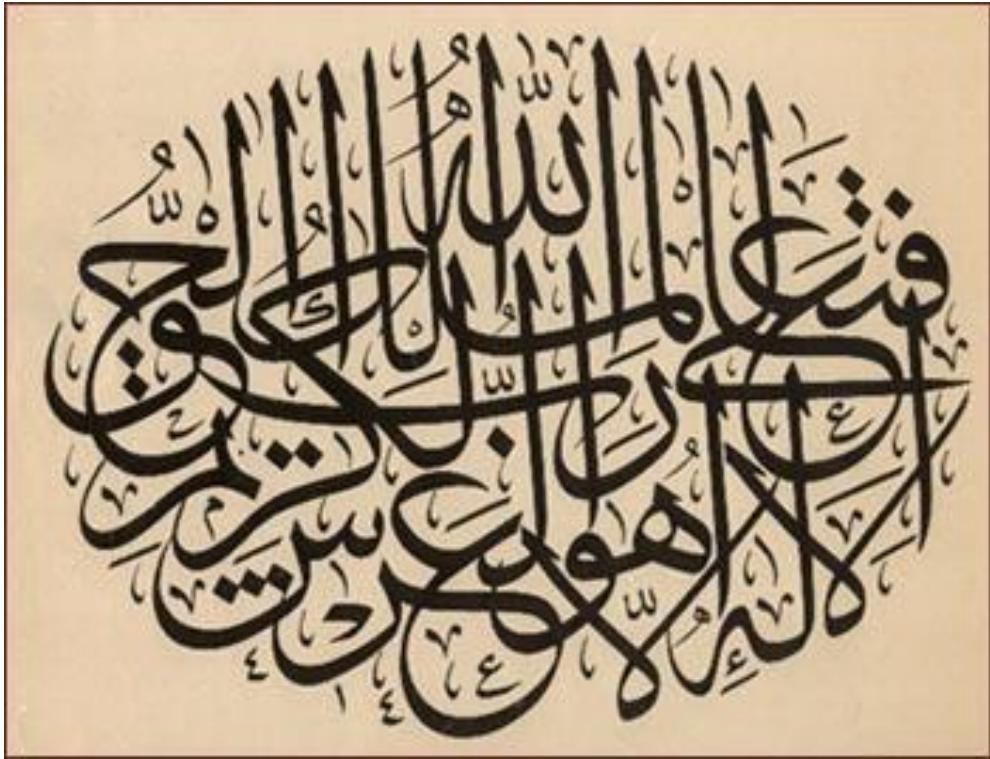 فتعالى الله الملك الحق لا إله إلا هو رب العرش الكريم